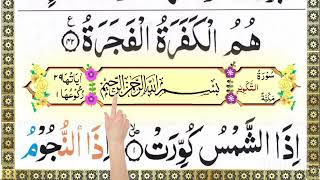 هُمُ الْكَفَرَةُ الْفَجَرَةُ ۝٤٢
سُورَةُ التَّكْوِيرِ مَكِّيَّةٌ
بِسْمِ اللّٰهِ الرَّحْمٰنِ الرَّحِيْمِ
اٰيَاتُهَا ٢٩ رُكُوْعُهَا ١
اِذَا الشَّمْسُ كُوِّرَتْ ۝١ اِذَا النُّجُوْمُ